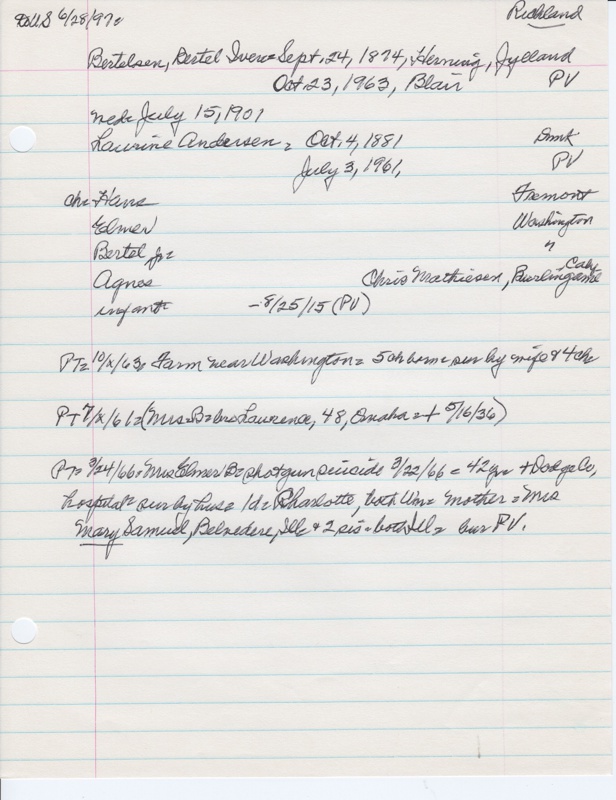 6/28/97= Richland
Bertelsen, Bertel Iver= Sept. 24, 1874, Herning, Jylland
Oct. 23, 1963, Blair PV
wed= July 15, 1901
Laurine Andersen= Oct. 4, 1881 Dmk
July 3, 1961, PV
ch= Hans Fremont
Elmer Washington
Bertel jr= "
Agnes Chris Mathiesen, Burlingame Calif
infant= -8/25/15 (PV)
PT= 10/x/63= Farm near Washington= 5 ch born= sur by wife & 4 ch=
PT 7/x/61= (Mrs= B= bro Laurence, 48, Omaha= + 5/16/36)
PT= 3/24/66= Mrs Elmer B= shotgun suicide 3/22/66= 42 yr + Dodge Co,
hospital= sur by hus= 1d= Charlotte, both Wn= mother= Mrs
Mary Samuel, Belvedere, Ill & 2 sis= both Ill= bur PV.